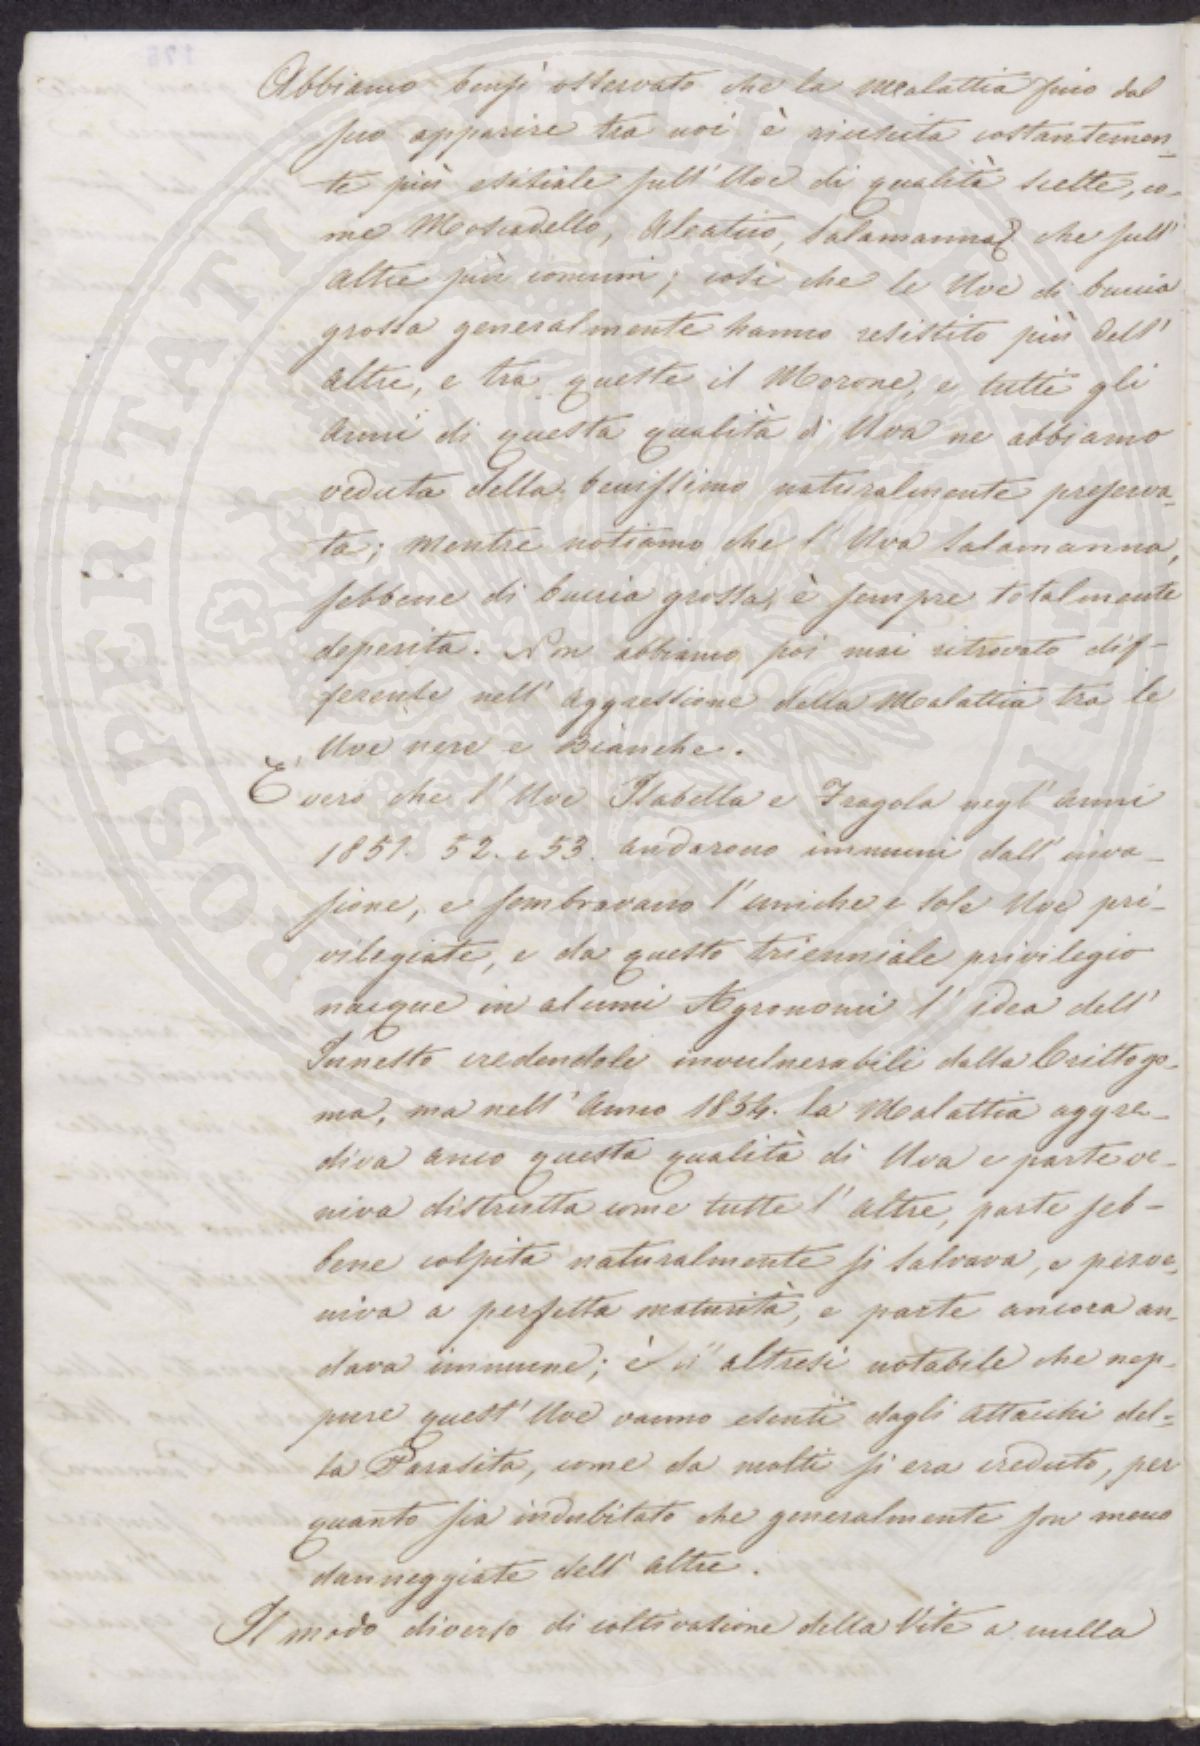 Abbiamo bensì osservato che la Malattia fino dal
suo apparire tra noi è riuscita costantemen-
te più esiziale sull'Uve di qualità scelte, co-
me Moscadello, Aleatico, Salamanna che sull'
altre più comuni; così che le Uve di buccia
grossa generalmente hanno resistito più dell'
altre, e tra queste il Morone, e tutti gli
Anni di questa qualità di Uva ne abbiamo
veduta della benissimo naturalmente preserva-
ta; mentre notiamo che l'Uva Salamanna,
sebbene di buccia grossa, è sempre totalmente
deperita. Non abbiamo poi mai ritrovato dif-
ferenze nell'aggressione della Malattia tra le
Uve nere e Bianche.
E' vero che l'Uve Isabella e Fragola negl'Anni
1851. 52. e 53. andarono immuni dall'inva-
sione, e sembravano l'uniche e sole Uve pri-
vilegiate, e da questo triennale privilegio
nacque in alcuni Agronomi l'idea dell'
Innesto credendole invulnerabili dalla Crittoga-
ma, ma nell'Anno 1854. la Malattia aggre-
diva anco questa qualità di Uva e parte ve-
niva distrutta come tutte l'altre, parte seb-
bene colpita naturalmente si salvava, e perve-
niva a perfetta maturità, e parte ancora an-
dava immune; è altresì notabile che nep-
pure quest'Uve vanno esenti dagli attacchi del-
la Parasita, come da molti si era creduto, per
quanto sia indubitato che generalmente son meno
danneggiate dell'altre.
Il modo diverso di coltivazione della Vite a nulla